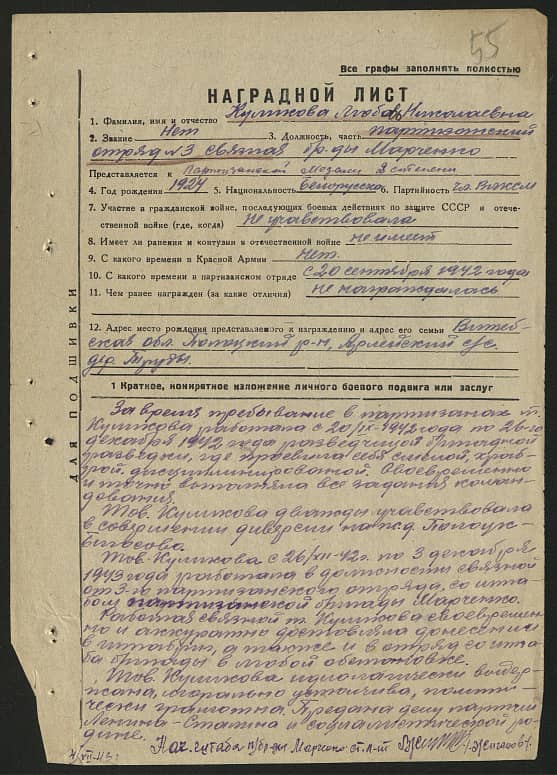 55
Все графы заполнять полностью
НАГРАДНОЙ ЛИСТ
1. Фамилия, имя и отчество Куликова Любовь Николаевна
2. Звание Нет 3. Должность, часть партизанский
отряд №3 связная бр-ды Марченко
Представляется к Партизанской Медали 2 степени
4. Год рождения 1924 5. Национальность белорусска 6. Партийность чл. ВЛКСМ
7. Участие в гражданской войне, последующих боевых действиях по защите СССР и отече-
ственной войне (где, когда) не участвовала
8. Имеет ли ранения и контузии в отечественной войне не имеет
9. С какого времени в Красной Армии Нет.
10. С какого времени в партизанском отряде с 20 сентября 1942 года
11. Чем ранее награжден (за какие отличия) не награждалась
12. Адрес место рождения представляемого к награждению и адрес его семьи Витеб-
ская обл. Полоцкий р-н, с/с.
дер. Труды.
ДЛЯ ПОДШИВКИ
1 Краткое, конкретное изложение личного боевого подвига или заслуг
За время пребывание в партизанах т.
Куликова работала с 20/IX-1942 года по 26-го
декабря 1942 года разведчицей бригадной
разведки, где проевила себя смелой, храб-
рой, дисциплинированной. Своевременно
и точно выполняла все задания коман-
дования.
Тов. Куликова дважды участвовала
в совершении диверсии на ж.д. Полоцк-
Бигосово.
Тов. Куликова с 26/XII-42г. по 3 декабря
1943 года работала в должности связной
от 3-го партизанского отряда, со шта-
бом партизанской бригады Марченко.
Работая связной т. Куликова своевремен-
но и аккуратно доставляла донесения
в штабриг, а также и в отряд со шта-
ба бригады в любой обстановке.
Тов. Куликова идиологически выдер-
жана, морально устойчива, полити-
чески грамотна. Предана делу партии
Ленина-Сталина и социалистической ро-
дине.
Нач. штаба п/бр-ды Марченко ст. л-т